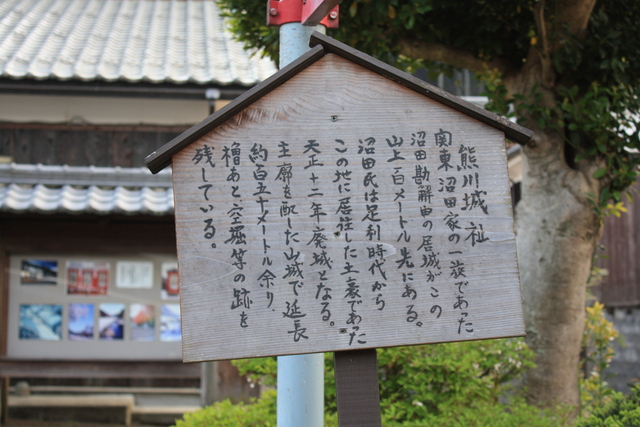 熊川城址
関東沼田家の一族であった
沼田勘解由の居城がこの
山上一百メートル先にある。
沼田氏は足利時代から
この地に居住した土豪であった
天正十二年廃城となる。
主廓を配した山城で延長
約百五十メートル余り
櫓あと、空堀等の跡を
残している。